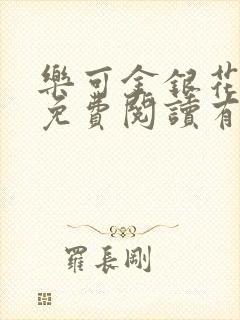 樂可金銀花
免費閱讀有
羅長剛